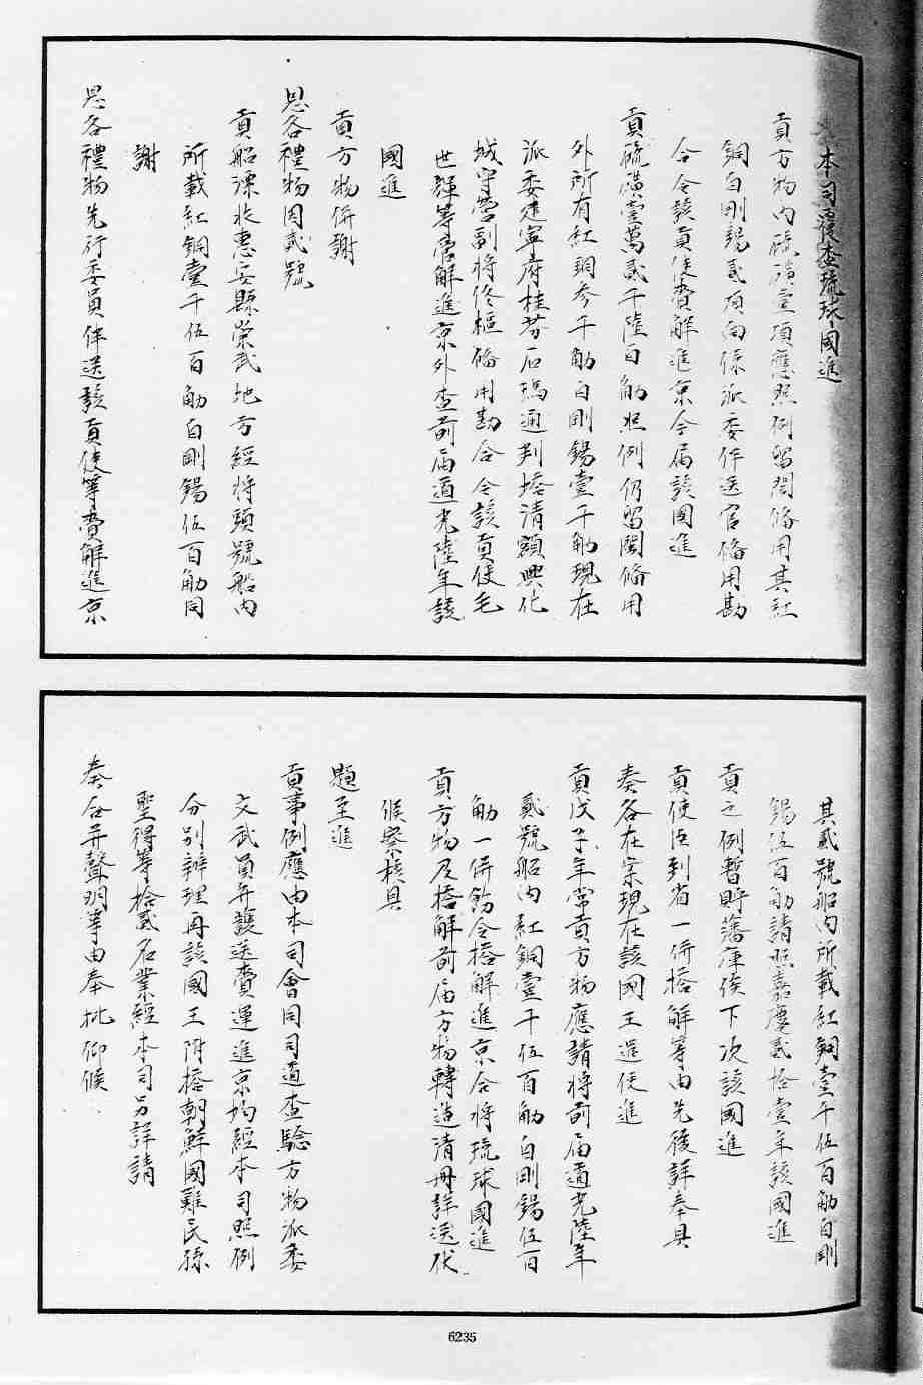 本司覆查琉球國進
貢方物內硫磺壹項應照例留閩偹用其紅
銅白剛錫貳項向係派委伴送官偹用勘
合令該貢使賫解進京今屆該國進
貢硫磺壹萬貳千陸百觔照例仍留閩偹用
外所有紅銅參千觔白剛錫壹千觔現在
派委建寧府桂芬石瑪通判塔清額興化
城守營副將佟樞偹用勘合令該貢使毛
世輝等賫解進京外查前屆道光陸年該
國進
貢方物併謝
恩各禮物因貳號
貢船漂收惠安縣崇武地方經將頭號船內
所載紅銅壹千伍百觔白剛錫伍百觔同
謝
恩各禮物先行委員伴送該貢使等賫解進京
其貳號船內所載紅銅壹千伍百觔白剛
錫伍百觔請照嘉慶貳拾壹年該國進
貢之例暫貯藩庫俟下次該國進
貢使臣到省一併搭解等由先後詳奉具
奏各在案現在該國王遣使進
貢戊子年常貢方物應請將前屆道光陸年
貳號船內紅銅壹千伍百觔白剛錫伍百
觔一併飭令搭解進京合將琉球國進
貢方物及搭解前屆方物轉造清冊詳送伏
候察核具
題至進
貢事例應由本司會同司道查驗方物派委
文武員弁護送賫運進京均經本司照例
分別辦理再該國王附搭朝鮮國難民孫
聖得等拾貳名業經本司另詳請
奏合并聲明等由奉批仰候
6235